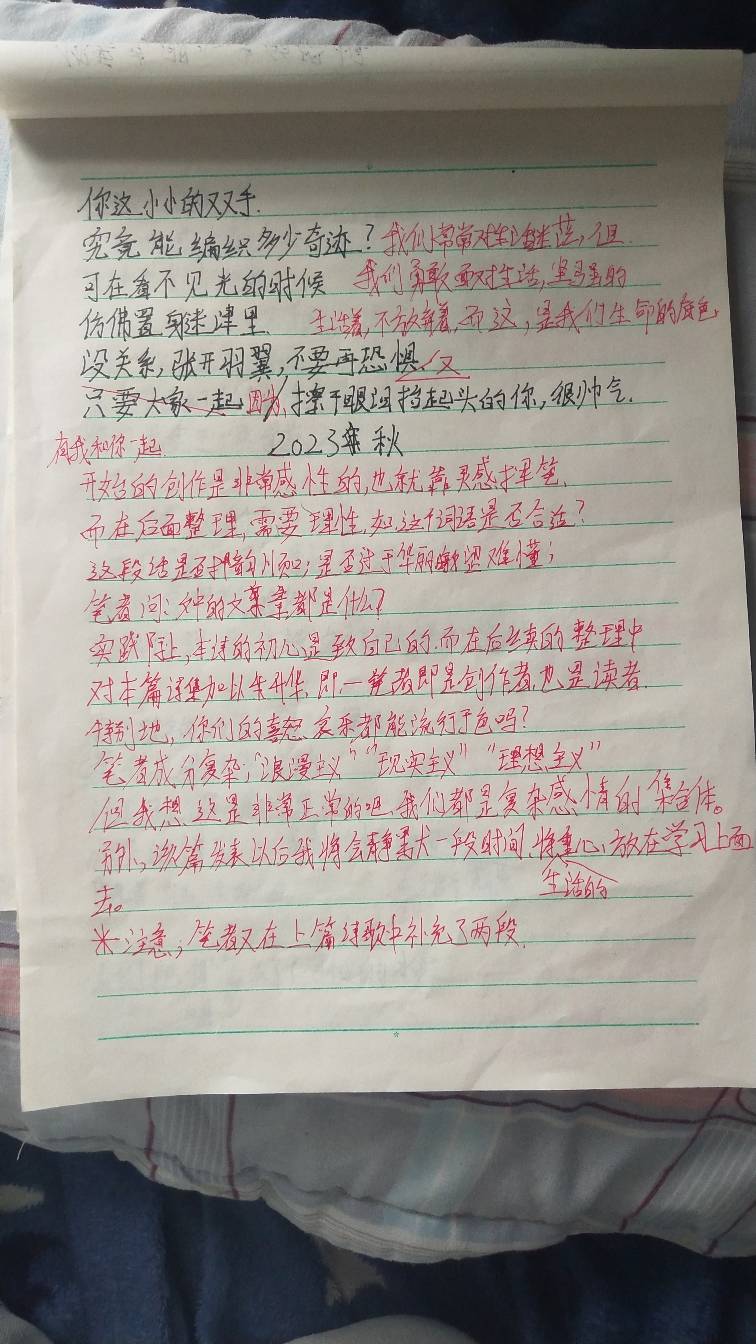 你这小小的双手.
究竟能编织多少奇迹？我们常常对生活迷茫,但
可在看不见光的时候 我们勇敢面对生活,坚强的
仿佛置身迷津里. 生活着,不放弃着,而这,是我们生命的底色
没关系,张开羽翼,不要再恐惧
只要大家一起 因为,擦干眼泪抬起头的你,很帅气.
有我和你一起 2023年秋
开始的创作是非常感性的,也就靠灵感挥笔.
而在后面整理,需要理性,如:这个词语是否合适?
这段话是否押韵顺口;是否过于华丽晦涩难懂;
笔者问:文中的文章都是什么?
实践际上,本诗的初心是致自己的.而在后续的整理中
对本篇诗集加以升华.即,一笔者即是创作者,也是读者.
特别地,你们的喜怒哀乐都能流行于色吗?
笔者成分复杂;"浪漫主义""现实主义""理想主义"
但我想这是非常正常的吧.我们都是复杂感情的集合体。
另外,该篇发表以后我将会静默一段时间,将重心放在学习上面
生活的
去。
*注意;笔者又在上篇诗歌中补充了两段.